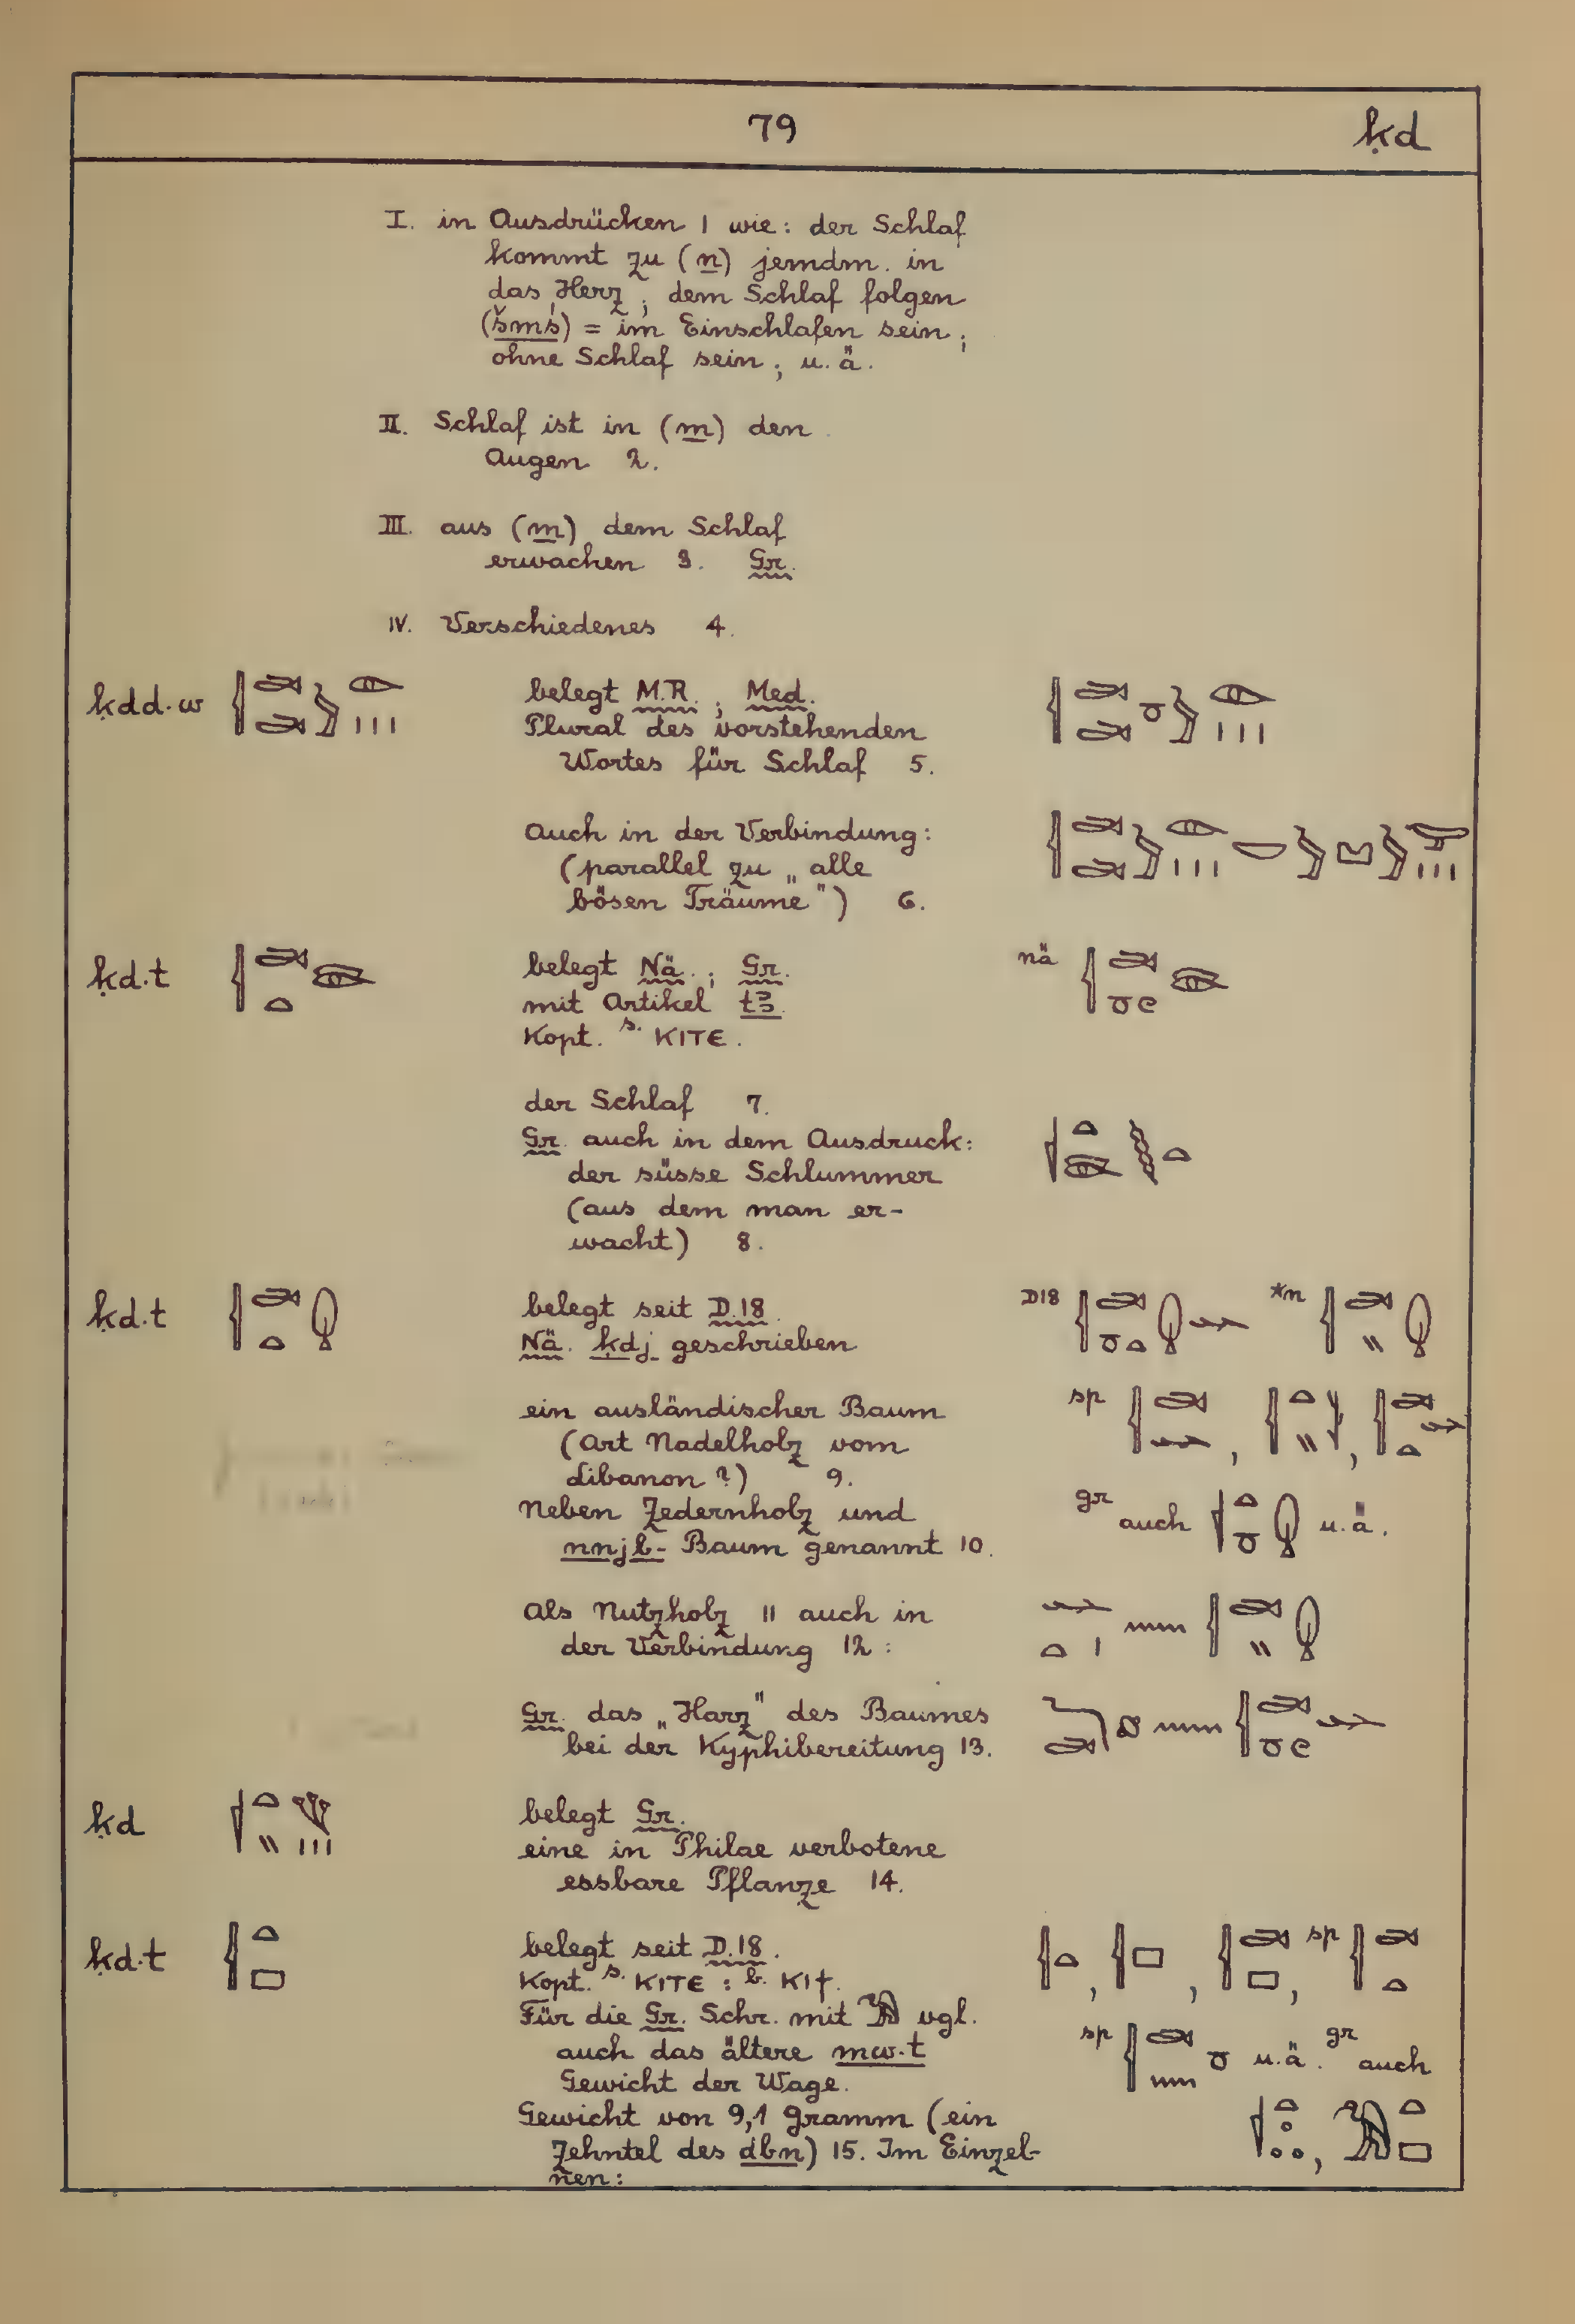 79 ḳd
I. in Ausdrücken 1 wie: der Schlaf
kommt zu (n) jemdm. in
das Herz; dem Schlaf folgen
(šmś) = im Einschlafen sein;
ohne Schlaf sein; u. ä.
II. Schlaf ist in (m) den
Augen 2.
III. aus (m) dem Schlaf
erwachen 3. Gr.
IV. Verschiedenes 4.
ḳdd.w belegt M.R.; Med.
Plural des vorstehenden
Wortes für Schlaf 5.
Auch in der Verbindung:
(parallel zu „alle
bösen Träume") 6.
ḳd.t belegt Nä.; Gr. nä
mit Artikel tꜣ.
Kopt. s. ⲔⲒⲦⲈ.
der Schlaf 7.
Gr. auch in dem Ausdruck:
der süsse Schlummer
(aus dem man er-
wacht) 8.
ḳd.t belegt seit D.18. D18 *n
Nä. ḳdj geschrieben
ein ausländischer Baum sp , ,
(Art Nadelholz vom
Libanon?) 9.
Neben Zedernholz und gr auch u. ä.
nnjb- Baum genannt 10.
Als Nutzholz 11 auch in
der Verbindung 12:
Gr. das „Harz" des Baumes
bei der Kyphibereitung 13.
ḳd belegt Gr.
eine in Philae verbotene
essbare Pflanze 14.
ḳd.t belegt seit D.18. , , , sp
Kopt. s. ⲔⲒⲦⲈ : b. ⲔⲒϮ.
Für die Gr. Schr. mit vgl.
auch das ältere mw.t sp u. ä. gr auch
Gewicht der Wage.
Gewicht von 9,1 Gramm (ein
Zehntel des dbn) 15. Im Einzel- ,
nen: